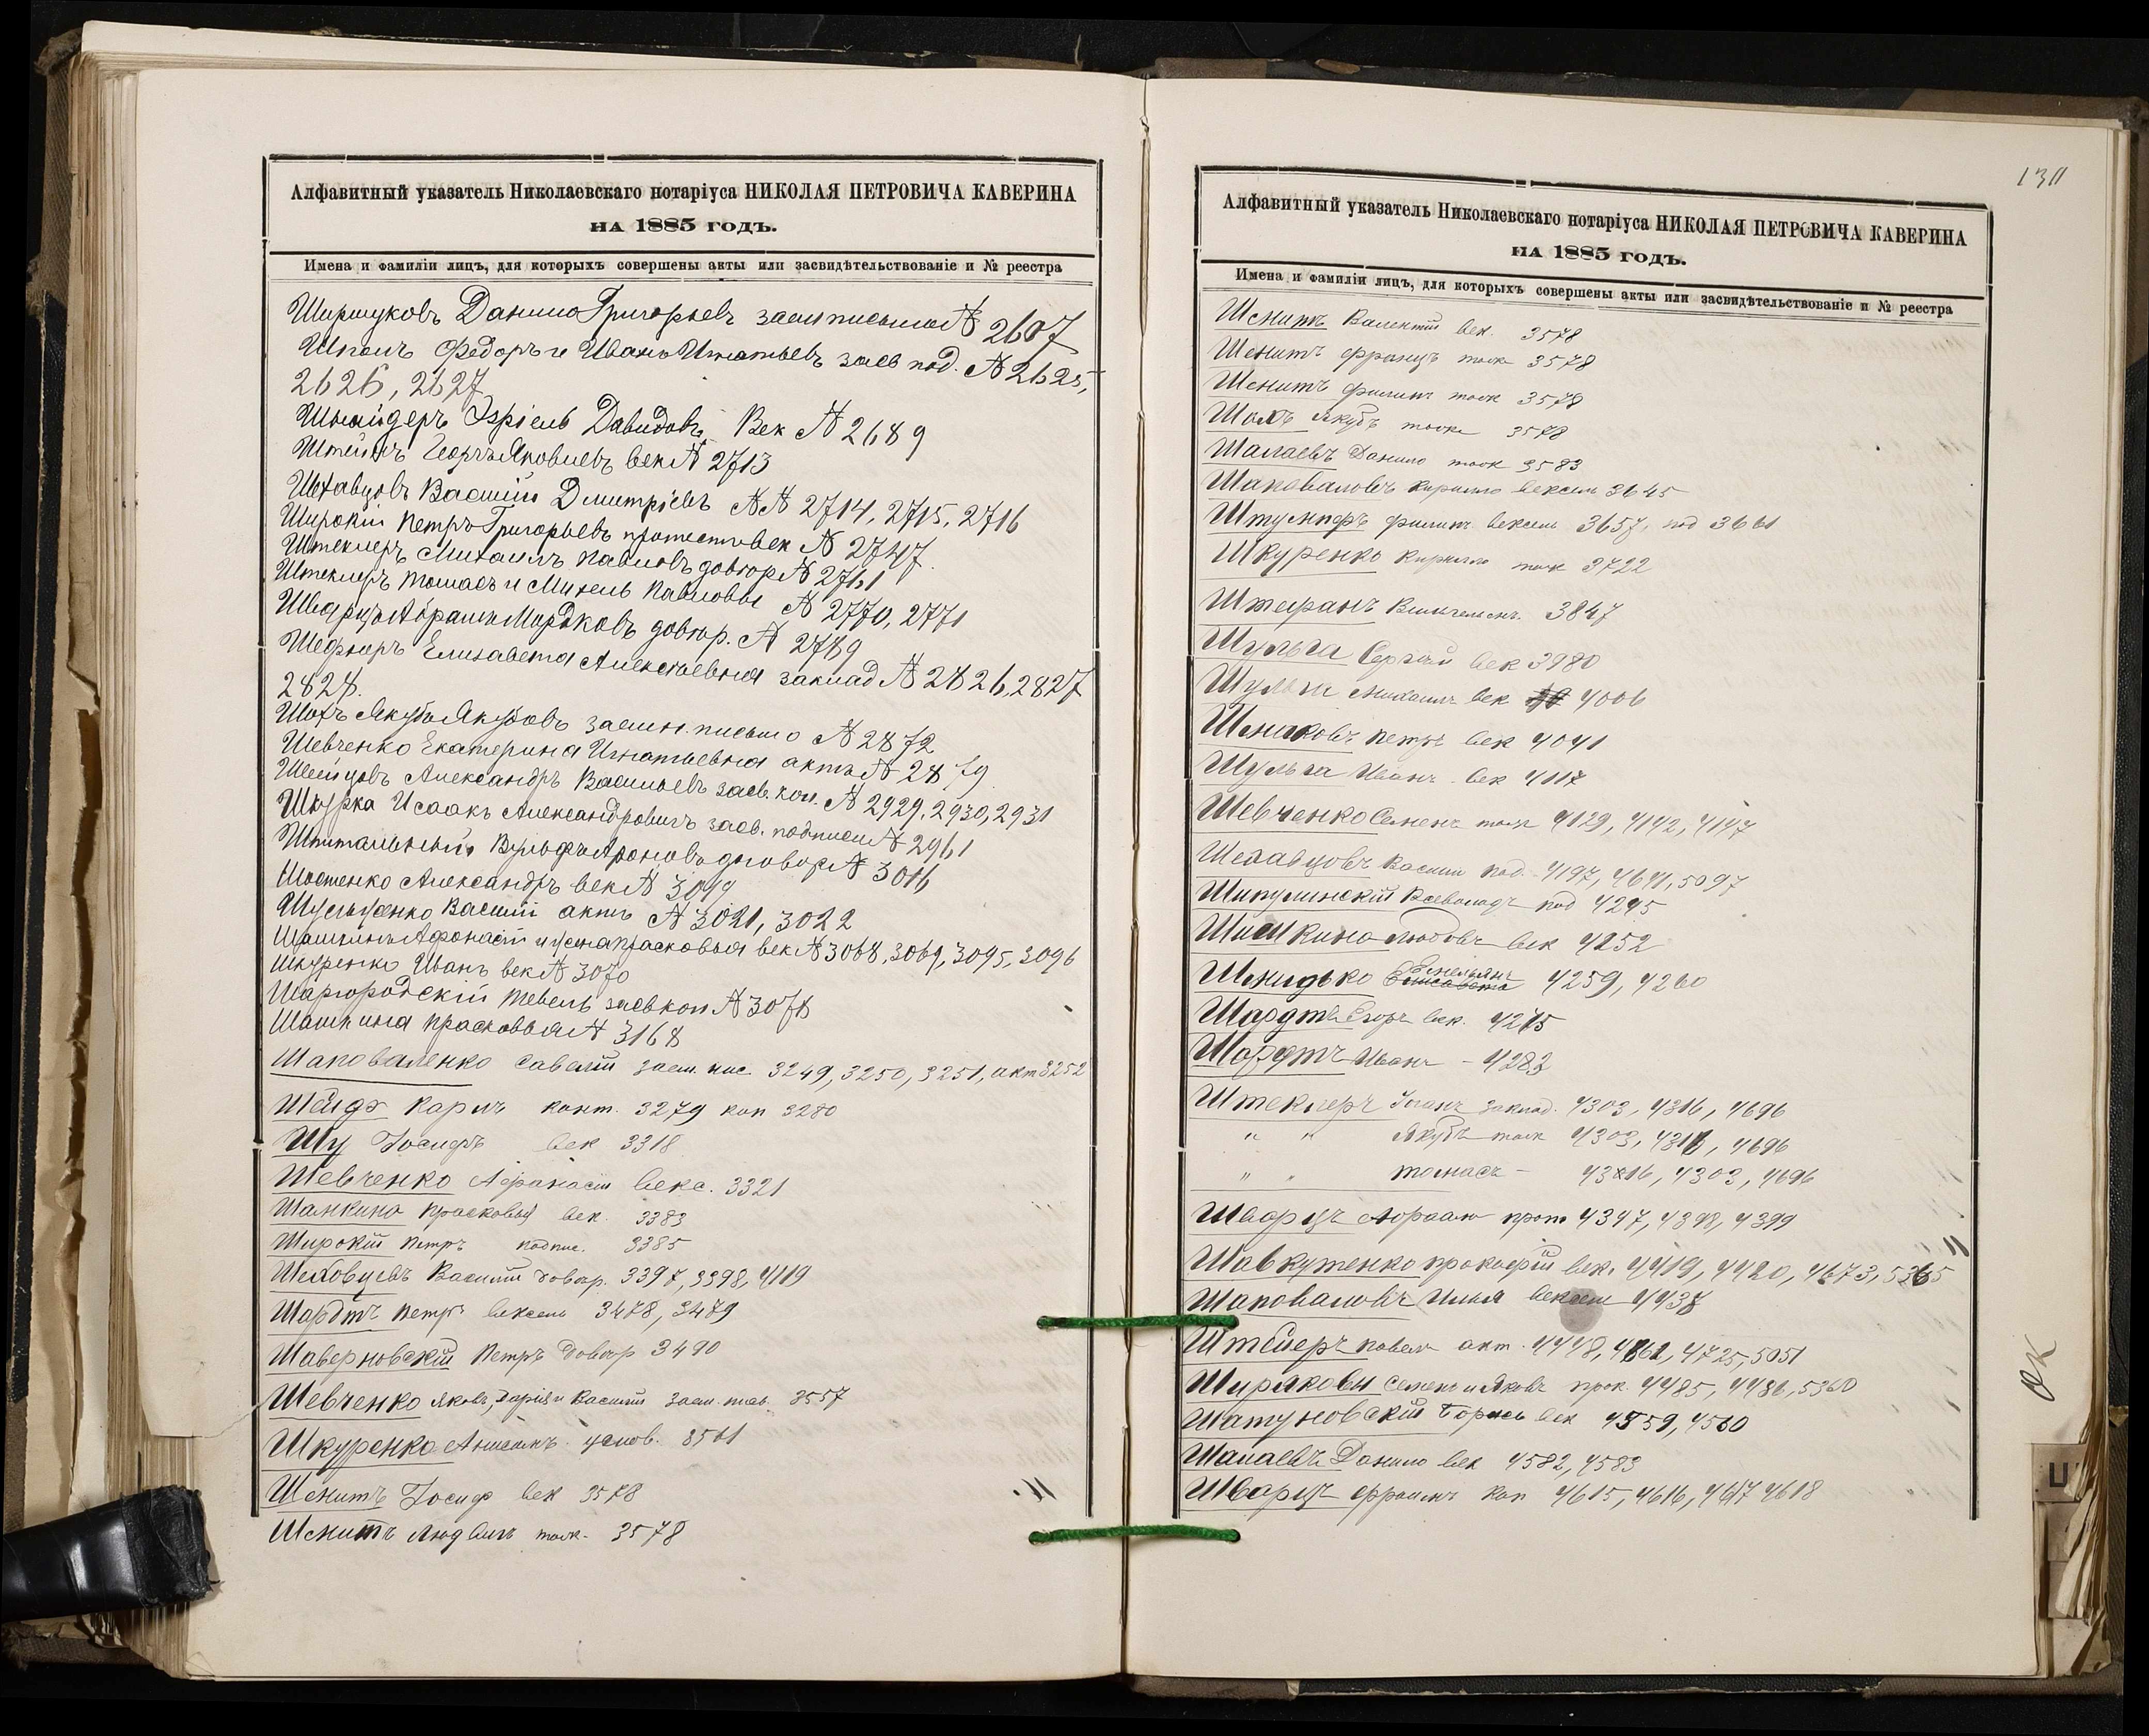 Алфавитный указатель Николаевскаго нотаріуса НИКОЛАЯ ПЕТРОВИЧА КАВЕРИНА
НА 1885 ГОДЪ.
Имена и фамиліи лицъ, для которыхъ совершены акты или засвидѣтельствованіе и № реестра
Ширшуковъ Данило Григорьевъ заем письмо № 2607
Шполь Федоръ и Иванъ Игнатьевъ засв под. № 2625,
2626, 2627
Шнайдеръ Эзріель Давидовъ Век № 2689
Штейнъ Георгъ Яковлевъ век № 2713
Шехавцовъ Василій Дмитріевъ №№ 2714, 2715, 2716
Широкій Петръ Григорьевъ протестъ век № 2747.
Штеклеръ Михаилъ Павловъ довѣр № 2761
Штеклеръ Томасъ и Михель Павловы № 2770, 2771
Шварцъ Абрамъ Мордковъ довѣр. № 2789
Шефнеръ Елизавета Алексѣевна заклад № 2826, 2827
2828.
Шохъ Якубъ Якубовъ заемн. письмо № 2872
Шевченко Екатерина Игнатьевна актъ № 2879
Шевцовъ Александръ Васильевъ засв. коп. № 2929, 2930, 2931
Шкурка Исаакъ Александровичъ засв. подписи № 2961
Шпитальный Вульфъ Ароновъ договор № 3016
Шостенко Александръ век № 3019
Шульженко Василій актъ № 3021, 3022
Шашкинъ Афонасій и жена Прасковья век № 3068, 3069, 3095, 3096
Шкуренко Иванъ век № 3070
Шаргородскій Тевель засв коп № 3078
Шашкина Прасковья № 3168
Шаповаленко Савелій заем. пис. 3249, 3250, 3251, акт 3252
Шейдэ Карлъ конт. 3279 коп 3280
Шу Іосифъ век 3318
Шевченко Афанасій векс. 3321
Шашкина Прасковья век. 3383
Широкій Петръ подпис. 3385
Шеховцевъ Василій довѣр. 3397, 3398, 4119
Шардтъ Петръ вексель 3478, 3479
Шаверновскій Петръ Довѣр 3490
Шевченко Яковъ, Дарія и Василій заем. 3557
Шкуренко услов. 3561
Шмитъ Іосиф век 3578
Шмитъ Людвигъ тоже. 3578
1311
Алфавитный указатель Николаевскаго нотаріуса НИКОЛАЯ ПЕТРОВИЧА КАВЕРИНА
НА 1885 ГОДЪ.
Имена и фамиліи лицъ, для которыхъ совершены акты или засвидѣтельствованіе и № реестра
Шмитъ Валентій век. 3578
Шмитъ Францъ тоже 3578
Шмитъ Филипъ тоже 3578
Шолъ Якубъ тоже 3578
Шалаевъ Данило тоже 3583
Шаповаловъ Кирилло вексель 3645
Штумпфъ Филипъ вексель 3657, под 3661
Шкуренко Кирилло тоже 3722
Штефанъ Вильгельмъ. 3847
Шульга Сергѣй век 3980
Шульга Михаилъ век 4006
Шмаковъ Петръ век 4041
Шульга Иванъ век 4117
Шевченко Семенъ тоже 4139, 4142, 4147
Шехавцовъ Василій под. 4197, 4641, 5097
Шипулинскій Всеволодъ под 4245
Шишкина Любовь век 4252
Шмидько Емельянъ Елисавета 4259, 4260
Шардтъ Егоръ век. 4275
Шардтъ Иванъ - 4283
Штеклеръ Іоганъ заклад. 4303, 4316, 4696
" " Якубъ тоже 4303, 4316, 4696
" " Томасъ - 4316, 4303, 4696
Шварцъ Абрамъ прот 4347, 4398, 4399
Шавкутенко Прокофій век. 4419, 4420, 4673, 5365
Шаповаловъ Илья вексель 4438
Штейеръ Павелъ акт. 4448, 4662, 4725, 5051
Шураковы Семенъ и Яковъ прок. 4485, 4486, 5360
Шатуновскій Борисъ век 4559, 4560
Шалаевъ Данило век 4582, 4583
Шварцъ Ефроимъ коп 4615, 4616, 4617 4618